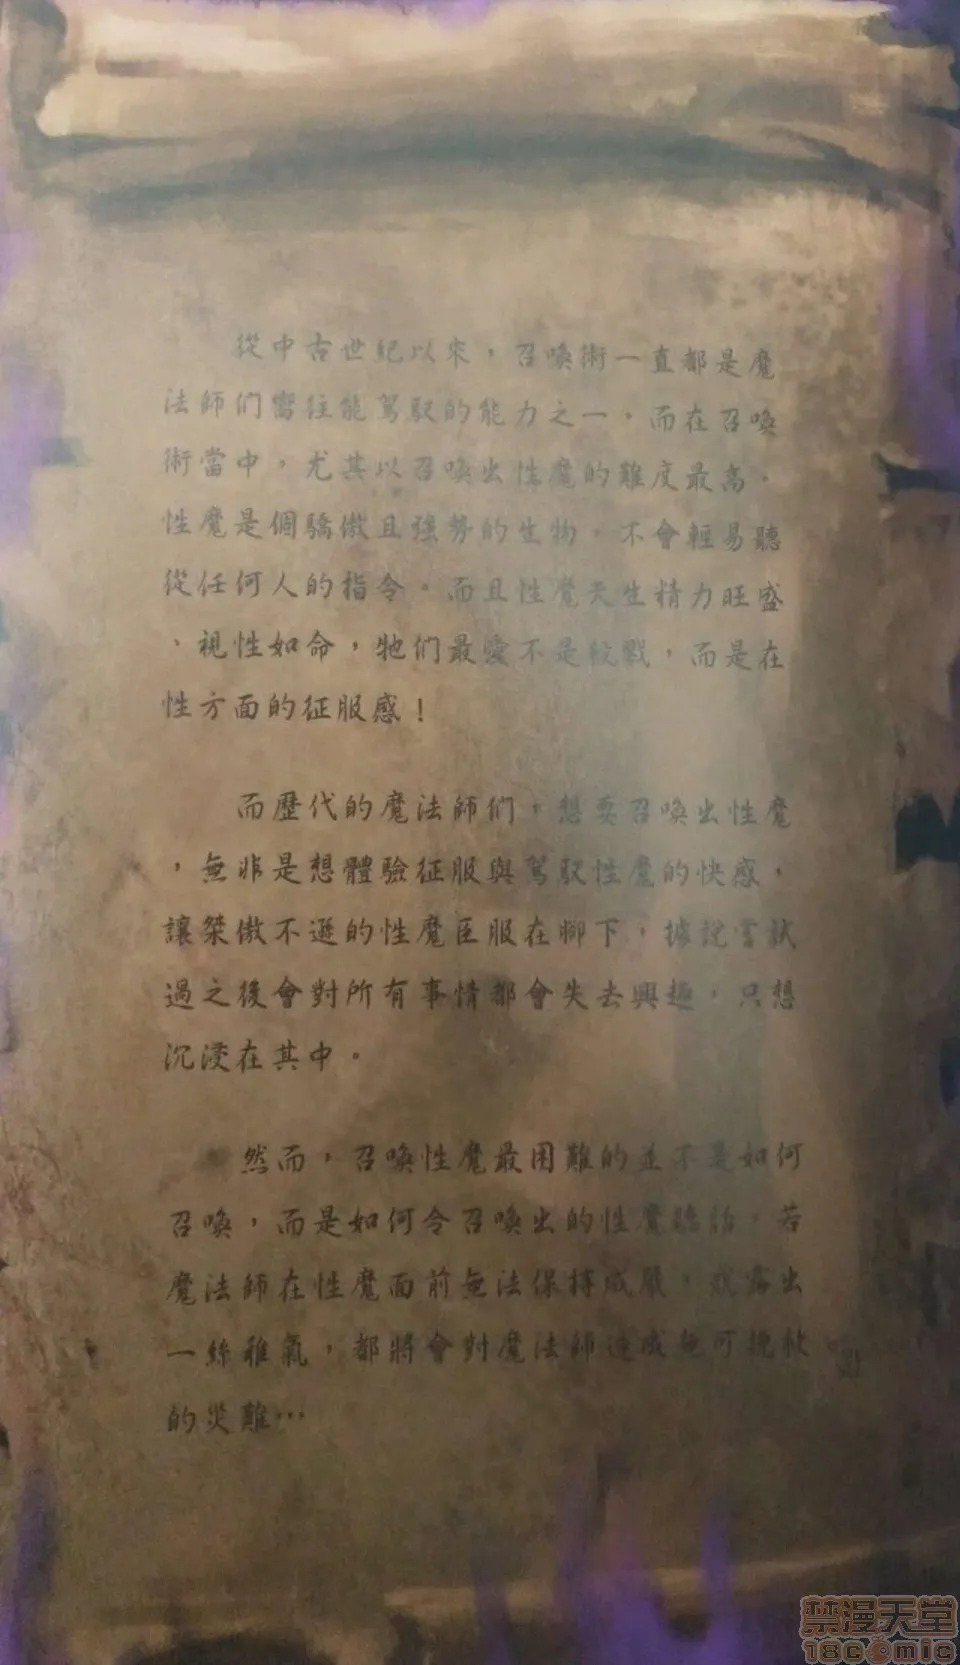 從中古世紀以來，召喚術一直都是魔
法師們嚮往能駕馭的能力之一，而在召喚
術當中，尤其以召喚出性魔的難度最高。
性魔是個驕傲且強勢的生物，不會輕易聽
從任何人的指令。而且性魔天生精力旺盛
、視性如命，牠們最愛不是殺戮，而是在
性方面的征服感！
而歷代的魔法師們，想要召喚出性魔
，無非是想體驗征服與駕馭性魔的快感，
讓桀傲不遜的性魔臣服在腳下，據說嘗試
過之後會對所有事情都會失去興趣，只想
沉浸在其中。
然而，召喚性魔最困難的並不是如何
召喚，而是如何令召喚出的性魔聽話，若
魔法師在性魔面前無法保持威嚴，或露出
一絲稚氣，都將會對魔法師造成無可挽救
的災難…
禁漫天堂
18comic